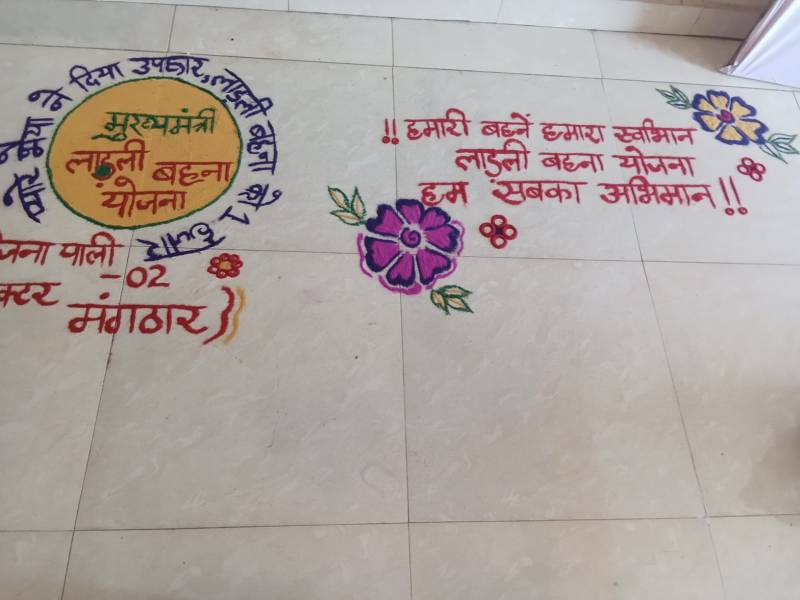 ने दिया उपकार, लाड़ली बहना को
मुख्यमंत्री
लाड़ली बहना
योजना
जना पाली
-02
क्टर
मंगठार)
!! हमारी बहनें हमारा स्वीमान
लाड़ली बहना योजना
हम सबका अभिमान !!